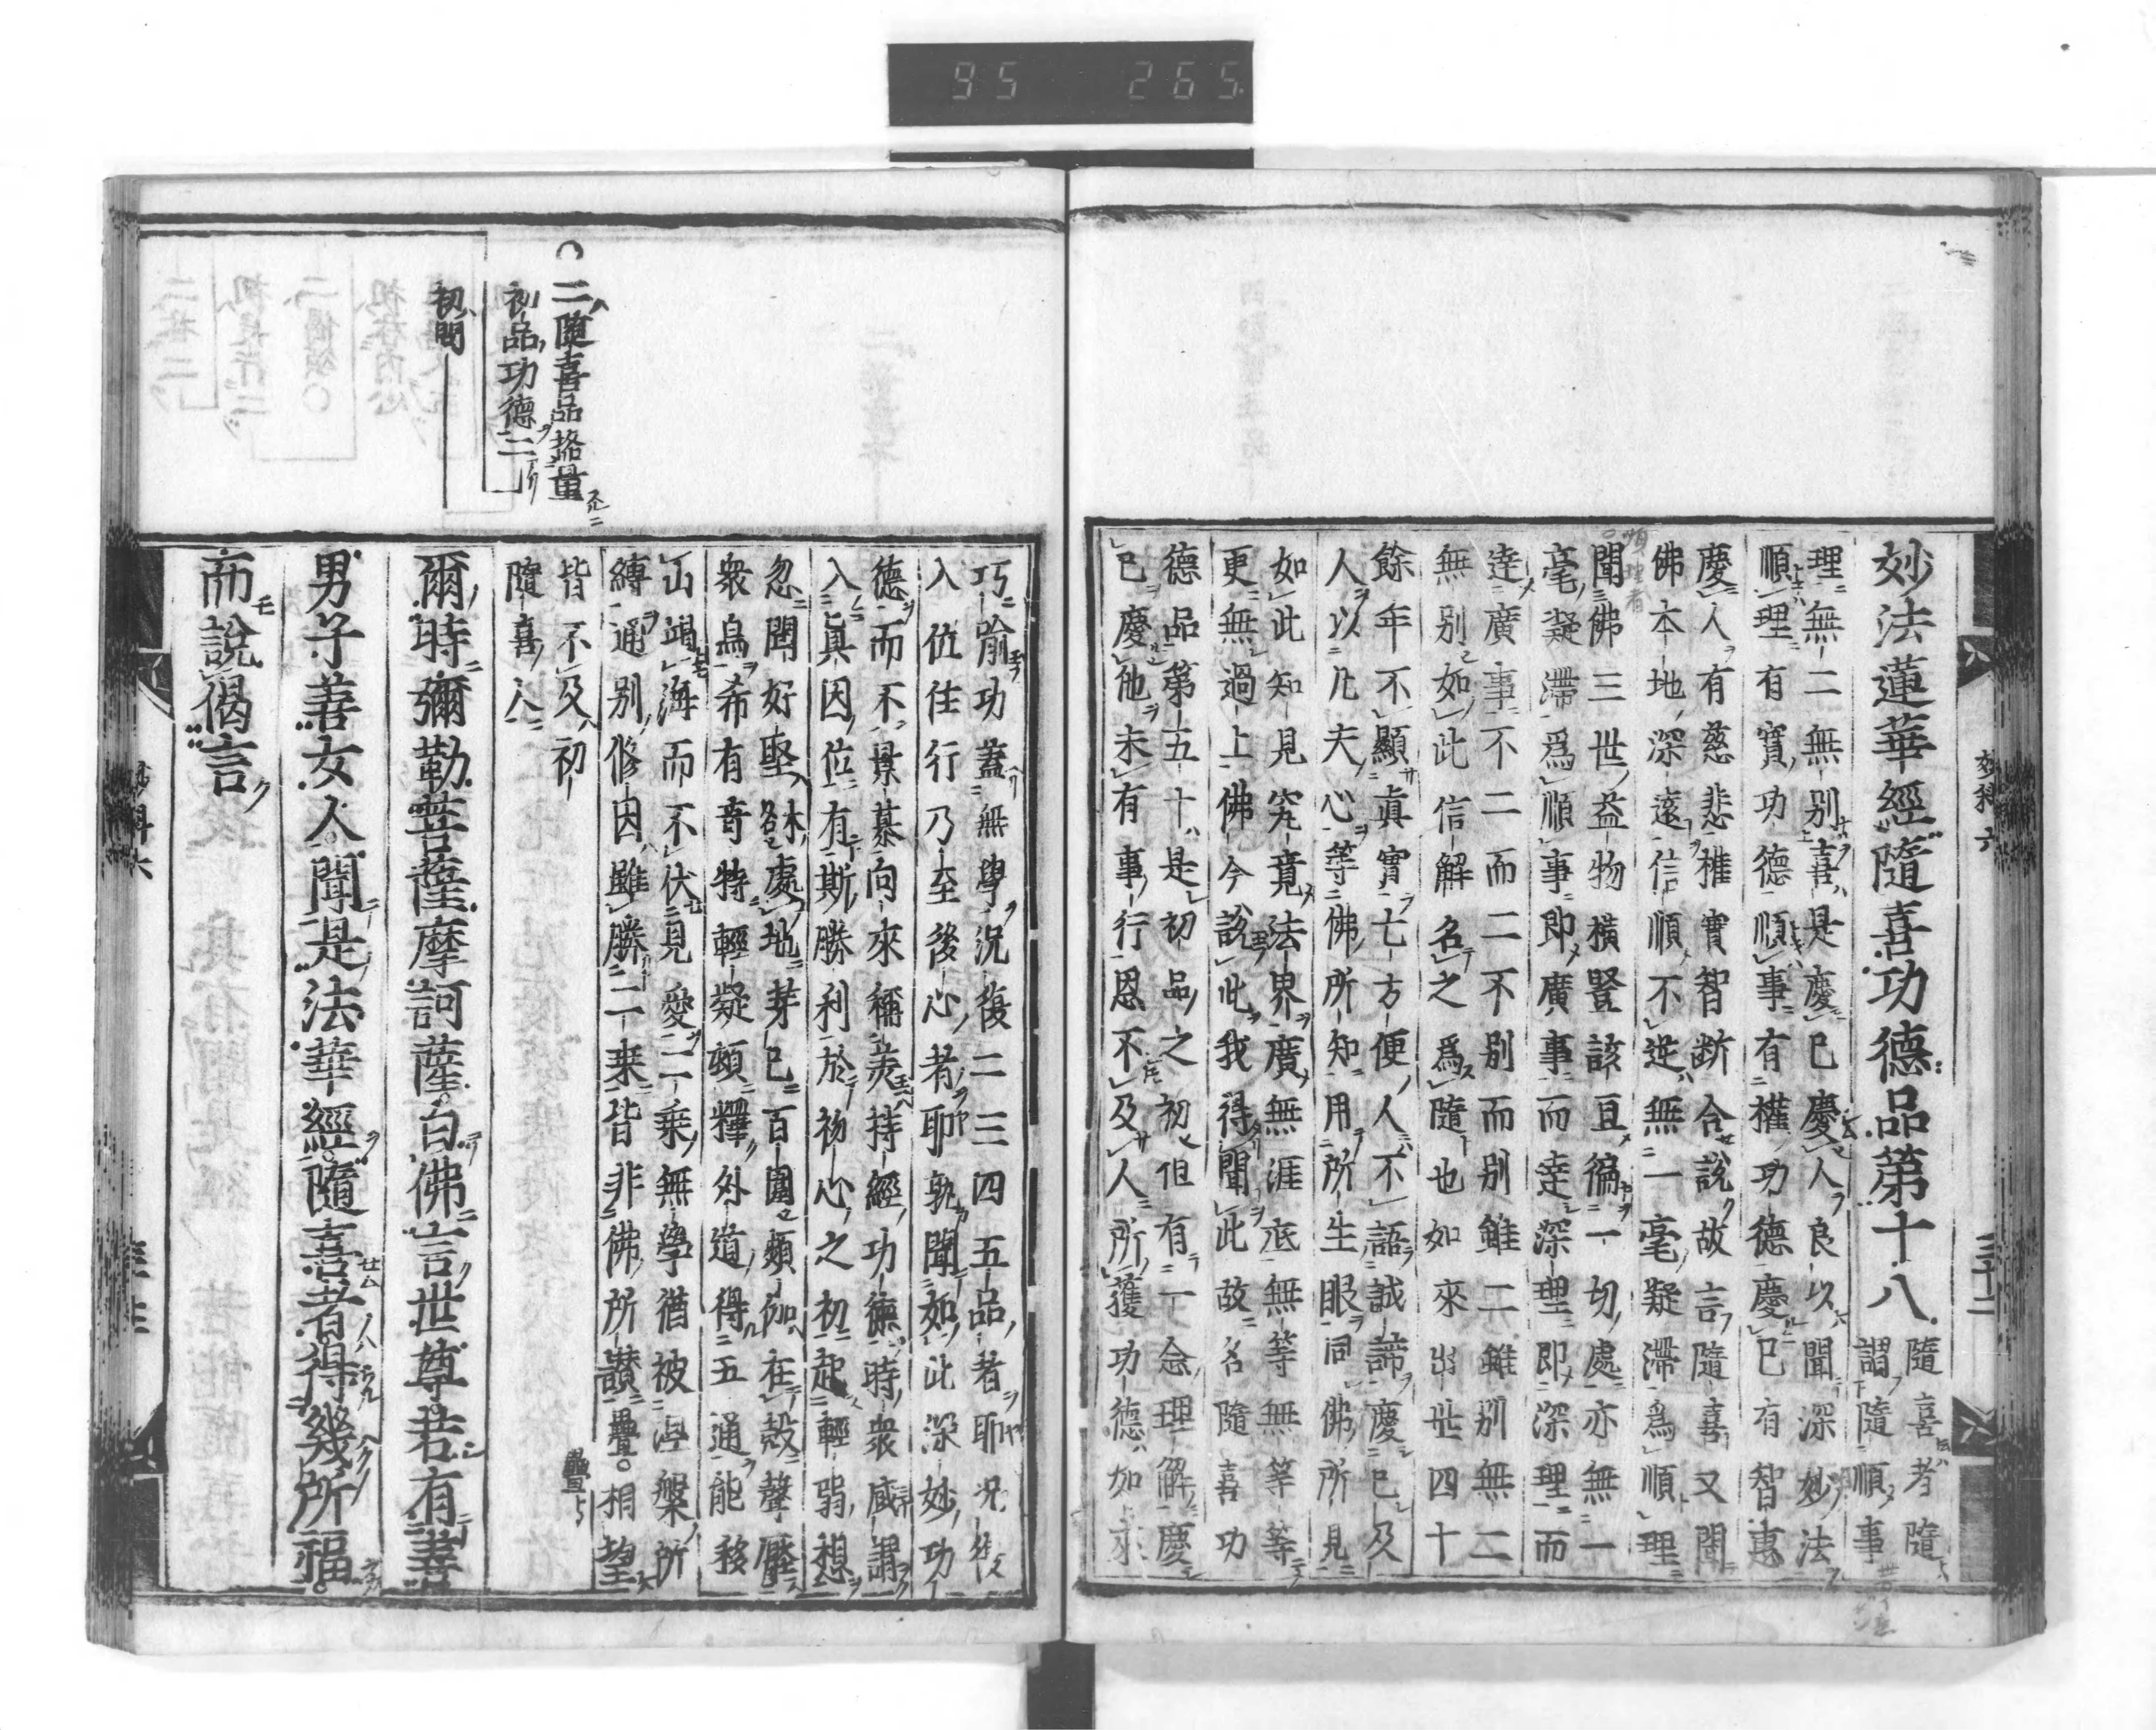 妙法蓮華經隨喜功德品第十八
隨喜者隨
謂隨順事
理無二無別喜是慶己慶人良以聞深妙法
順理有實功德順事有權功德慶己有智惠
慶人有慈悲權實智斷合說故言隨喜又聞
佛本地深遠信順不逆無一毫疑滯爲順理
聞佛三世益物橫豎該亘徧一切處亦無一
毫疑滯爲順事即廣事而達深理即深理而
達廣事不二而二不別而別雖二雖別無二
無別如此信解名之爲隨也如來出世四十
餘年不顯眞實七方便人不語誠諦慶己及
人以凡夫心等佛所知用所生眼同佛所見
如此知見究竟法界廣無涯底無等無等等
更無過上佛今說此我得聞此故名隨喜功
德品第五十是初品之初但有一念理解慶
己慶他未有事行恩不及人所獲功德如來
妙科六
三十二
二隨喜品挌量
初品功德二
初問
巧喻功蓋無學況復二三四五品者耶況復
入位住行乃至後心者耶孰聞如此深妙功
德而不景慕向來稱美持經功德時衆咸謂
入眞因位有斯勝利於初心之初起輕弱想
忽聞好堅處地芽已百圍頻伽在㲉聲壓
衆鳥希有奇特輕疑頓釋外道得五通能移
山竭海而不伏見愛二乘無學猶被涅槃所
縛通別修因雖勝二乘皆非佛所讚疊相望
皆不及初
隨喜人
爾時彌勒菩薩摩訶薩白佛言世尊若有善
男子善女人聞是法華經隨喜者得幾所福
而說偈言
妙科六